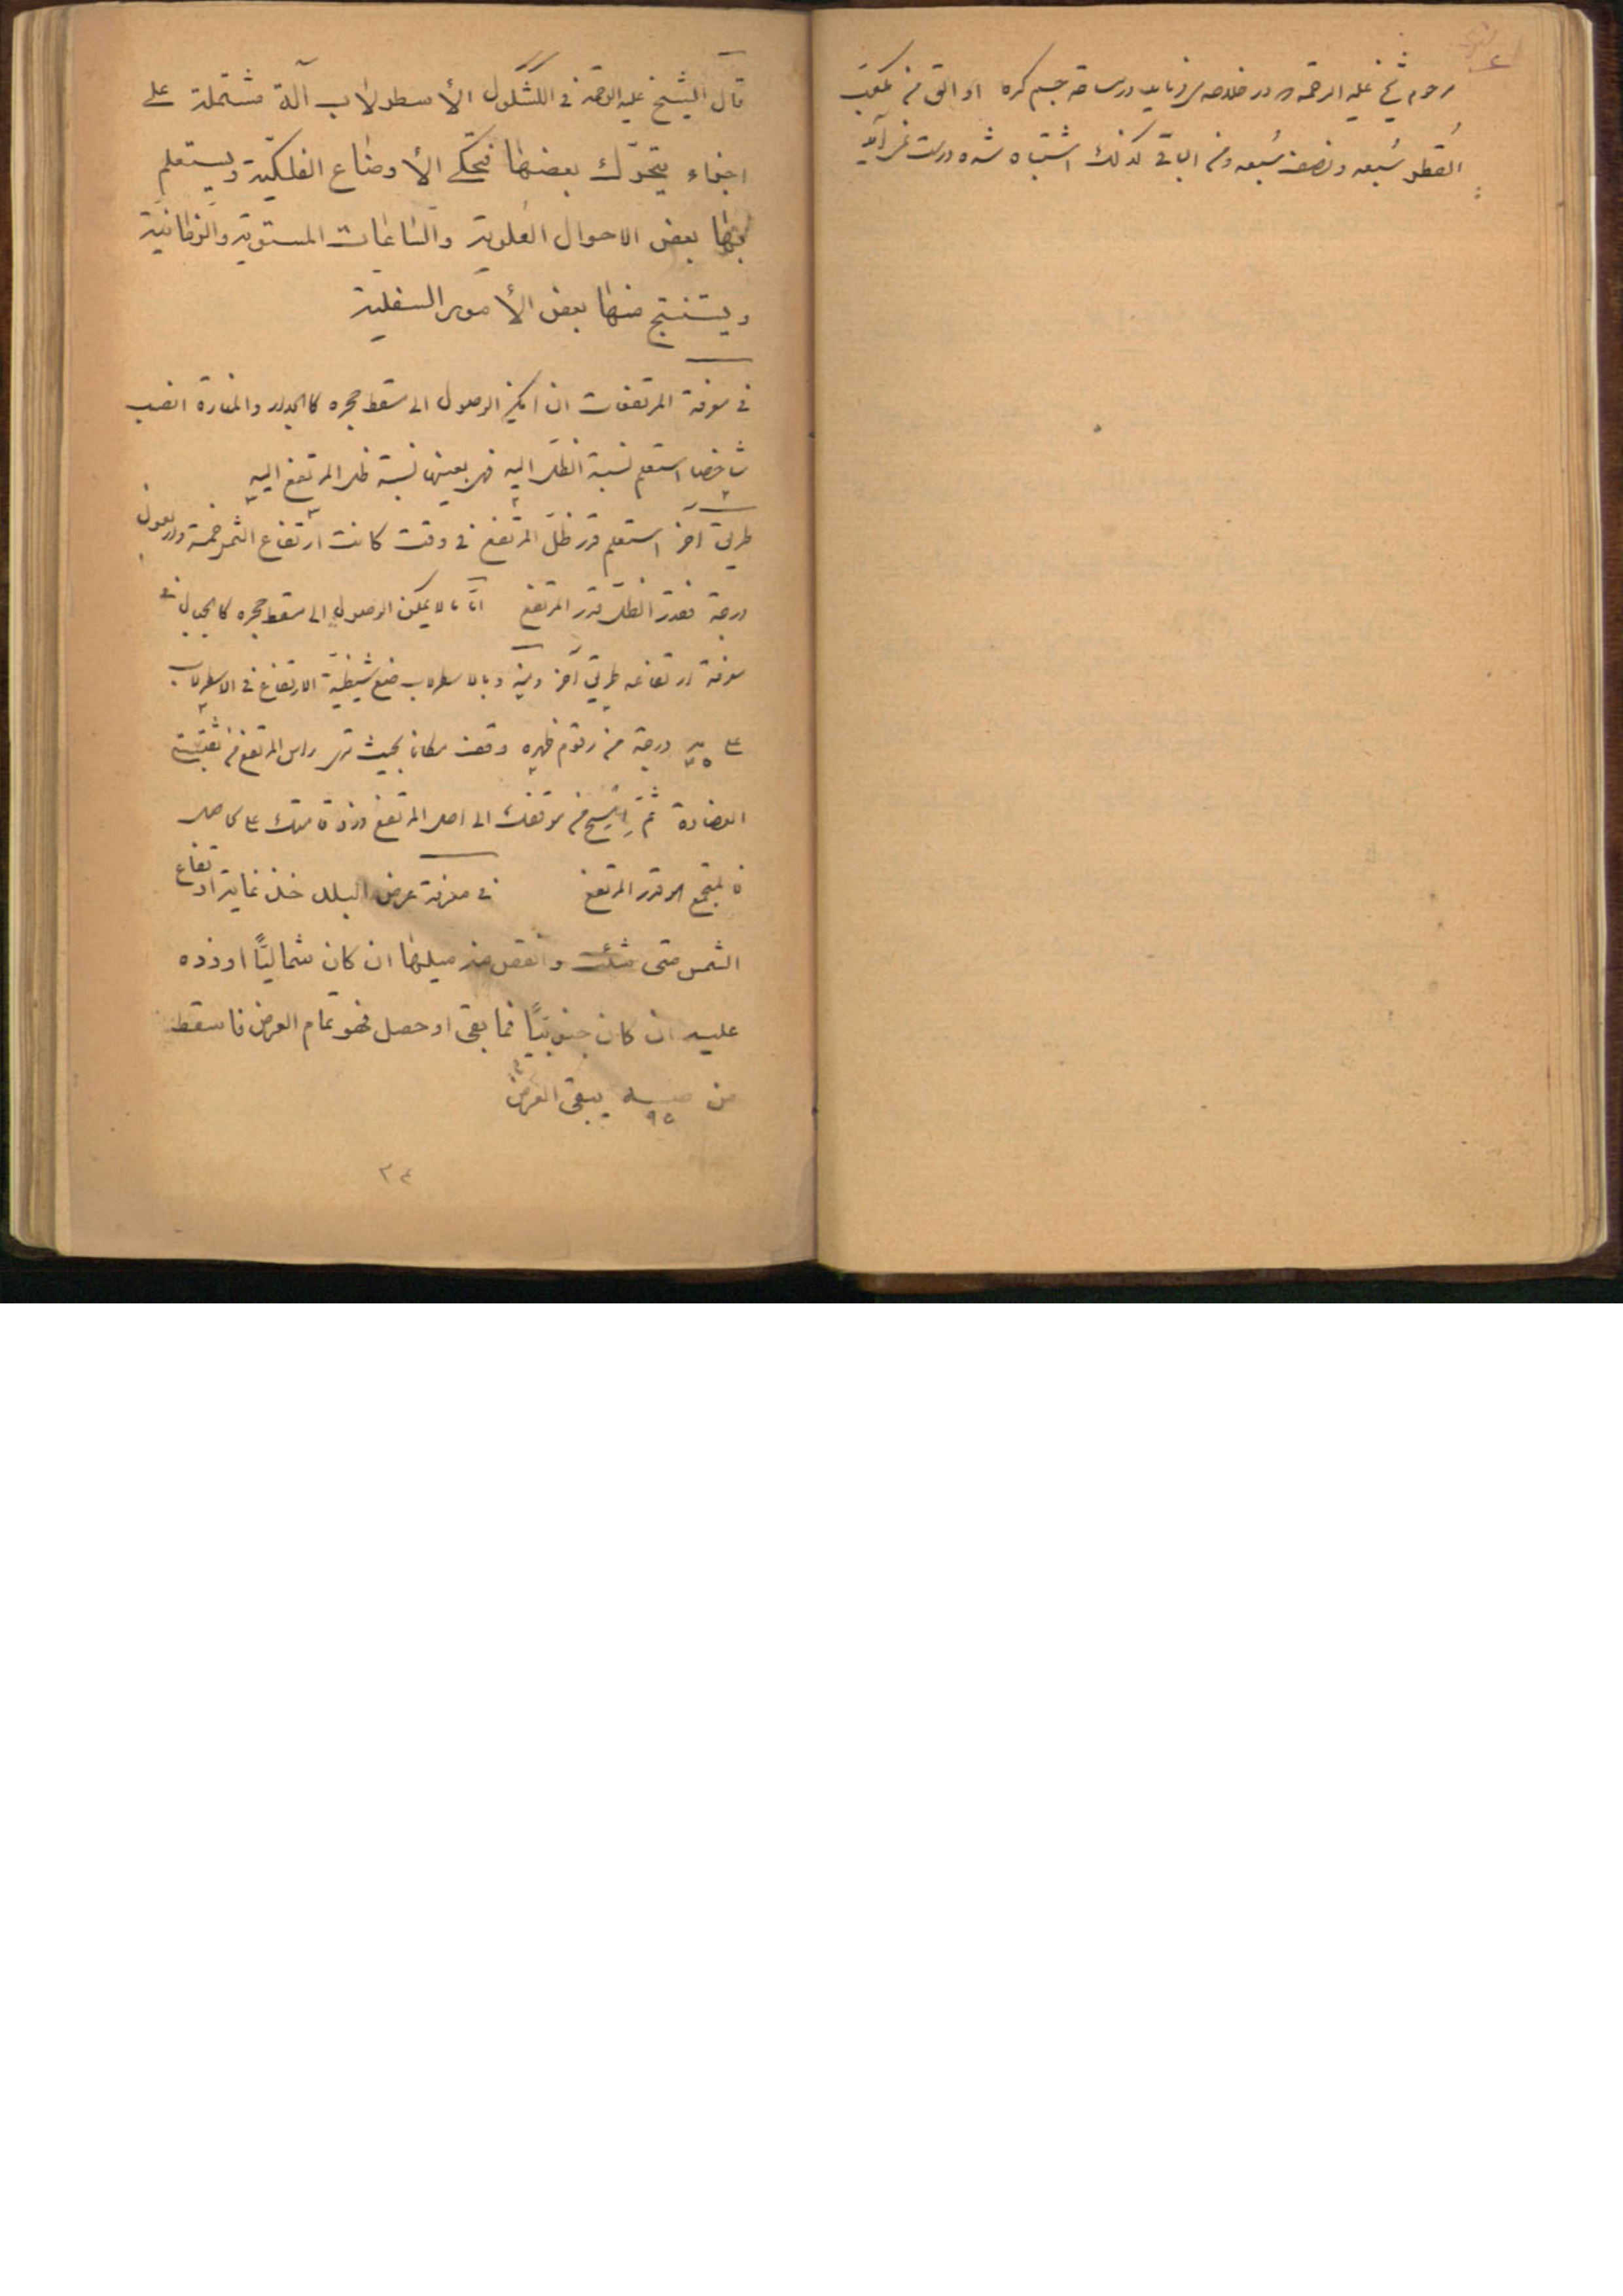 مرحوم شیخ علیه الرحمه در خلاصه میفرماید در مساحة جسم کره او الق من مکعب
القطر سُبعه و نصف سُبعه و من الباقی کذلک اشتباه شده درست نمی آید
قال الشیخ علیه الرحمة فی الکشکول الأسطرلاب آلة مشتملة علی
اجزاء یتحرّک بعضها فیحکی الأوضاع الفلکیّة و یستعلم
بها بعض الاحوال العلویة و الساعات المستویة و الزمانیة
و یستنتج منها بعض الأمور السفلیة
فی معرفة المرتفعات ان امکن الوصول الی مسقط حجره کالجدار و المنارة انصب
شاخصا استعلم نسبة الظل الیه فهی بعینها نسبة ظل المرتفع الیه
طریق آخر استعلم قدر ظلّ المرتفع فی وقت کانت ارتفاع الشمس خمسة و اربعون
درجة فقدر الظلّ قدر المرتفع امّا ما لا یمکن الوصول الی مسقط حجره کالجبال فی
معرفة ارتفاعه طریق آخر و بالاسطرلاب ضع شظیة الارتفاع فی الاسطرلاب
علی مه ۴۵ درجة من رقوم ظهره وقف مکانا بحیث تری راس المرتفع من ثقبتی
العضادة ثمّ امسح من موقفک الی اصل المرتفع و زد قامتک علی الحاصل
فالمجتمع هو قدر المرتفع فی معرفة عرض البلد خذ غایة ارتفاع
الشمس متی شئت و انقص منه میلها ان کان شمالیًّا او زده
علیه ان کان جنوبیًّا فما بقی او حصل فهو تمام العرض فاسقطه
من ص ۹۰ یبقی العرض